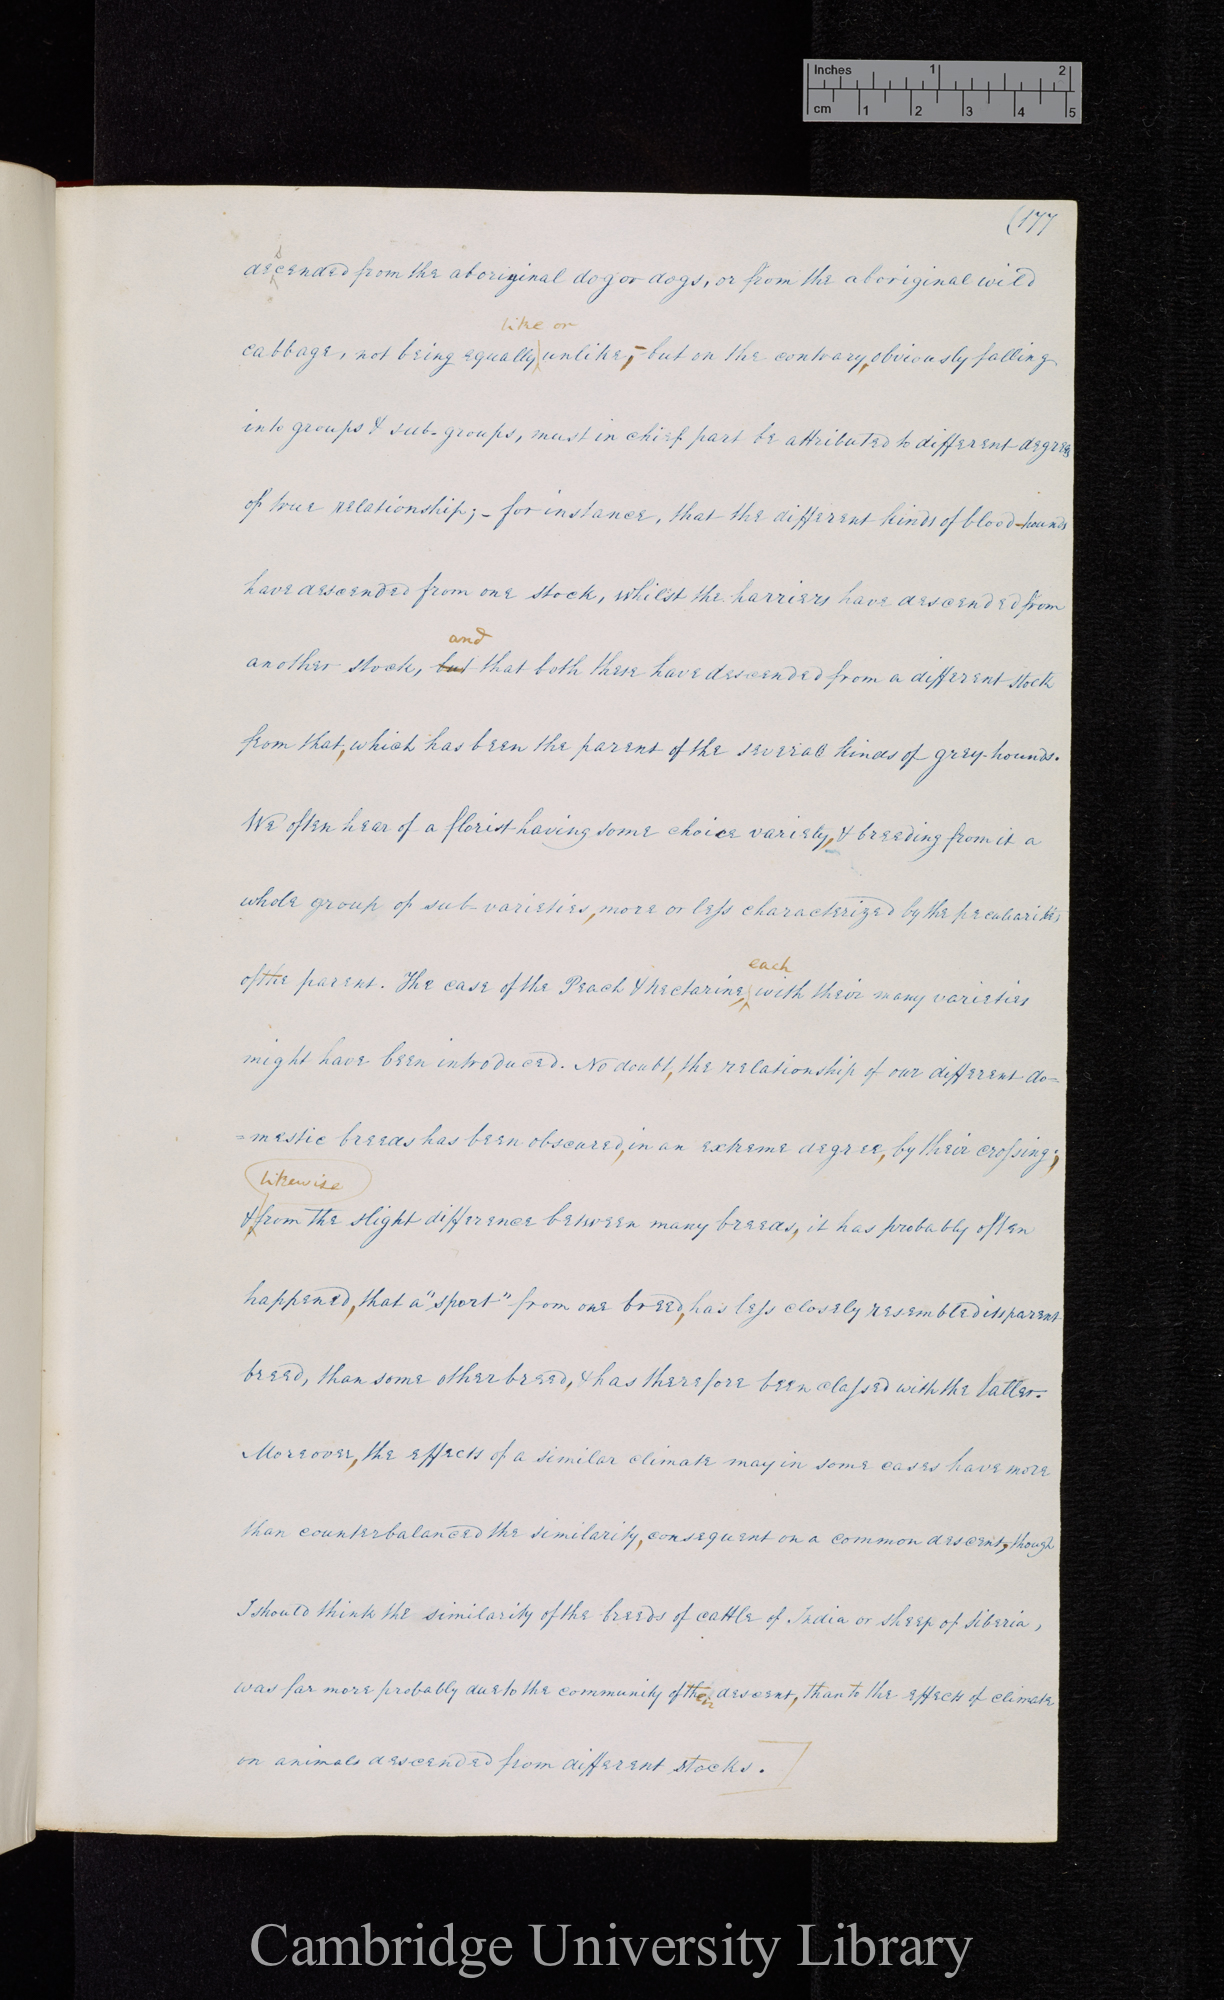 Inches 1 2
cm 1 2 3 4 5
(177
s
decended from the aboriginal dog or dogs, or from the aboriginal wild
like or
cabbage, not being equally unlike;- but on the contrary, obviously falling
into groups & sub-groups, must in chief part be attributed to different degrees
of true relationship;- for instance, that the different kinds of blood-hounds
have descended from one stock, whilst the harriers have descended from
and
another stock, but that both these have descended from a different stock
from that, which has been the parent of the several kinds of grey-hounds.
We often hear of a florist having some choice variety, & breeding from it a
whole group of sub-varieties, more or less characterized by the peculiarities
each
of the parent. The case of the Peach & Nectarine, with their many varieties
might have been introduced. No doubt, the relationship of our different do=
=mestic breeds has been obscured, in an extreme degree, by their crossing;
likewise
& from the slight difference between many breeds, it has probably often
happened, that a "sport" from one breed, has less closely resembled its parent
breed, than some other breed, & has therefore been classed with the latter.
Moreover, the effects of a similar climate may in some cases have more
than counterbalanced the similarity, consequent on a common descent; though
I should think the similarity of the breeds of cattle of India or sheep of Siberia,
was far more probably due to the community of their descent, than to the effects of climate
on animals descended from different stocks.]
Cambridge University Library